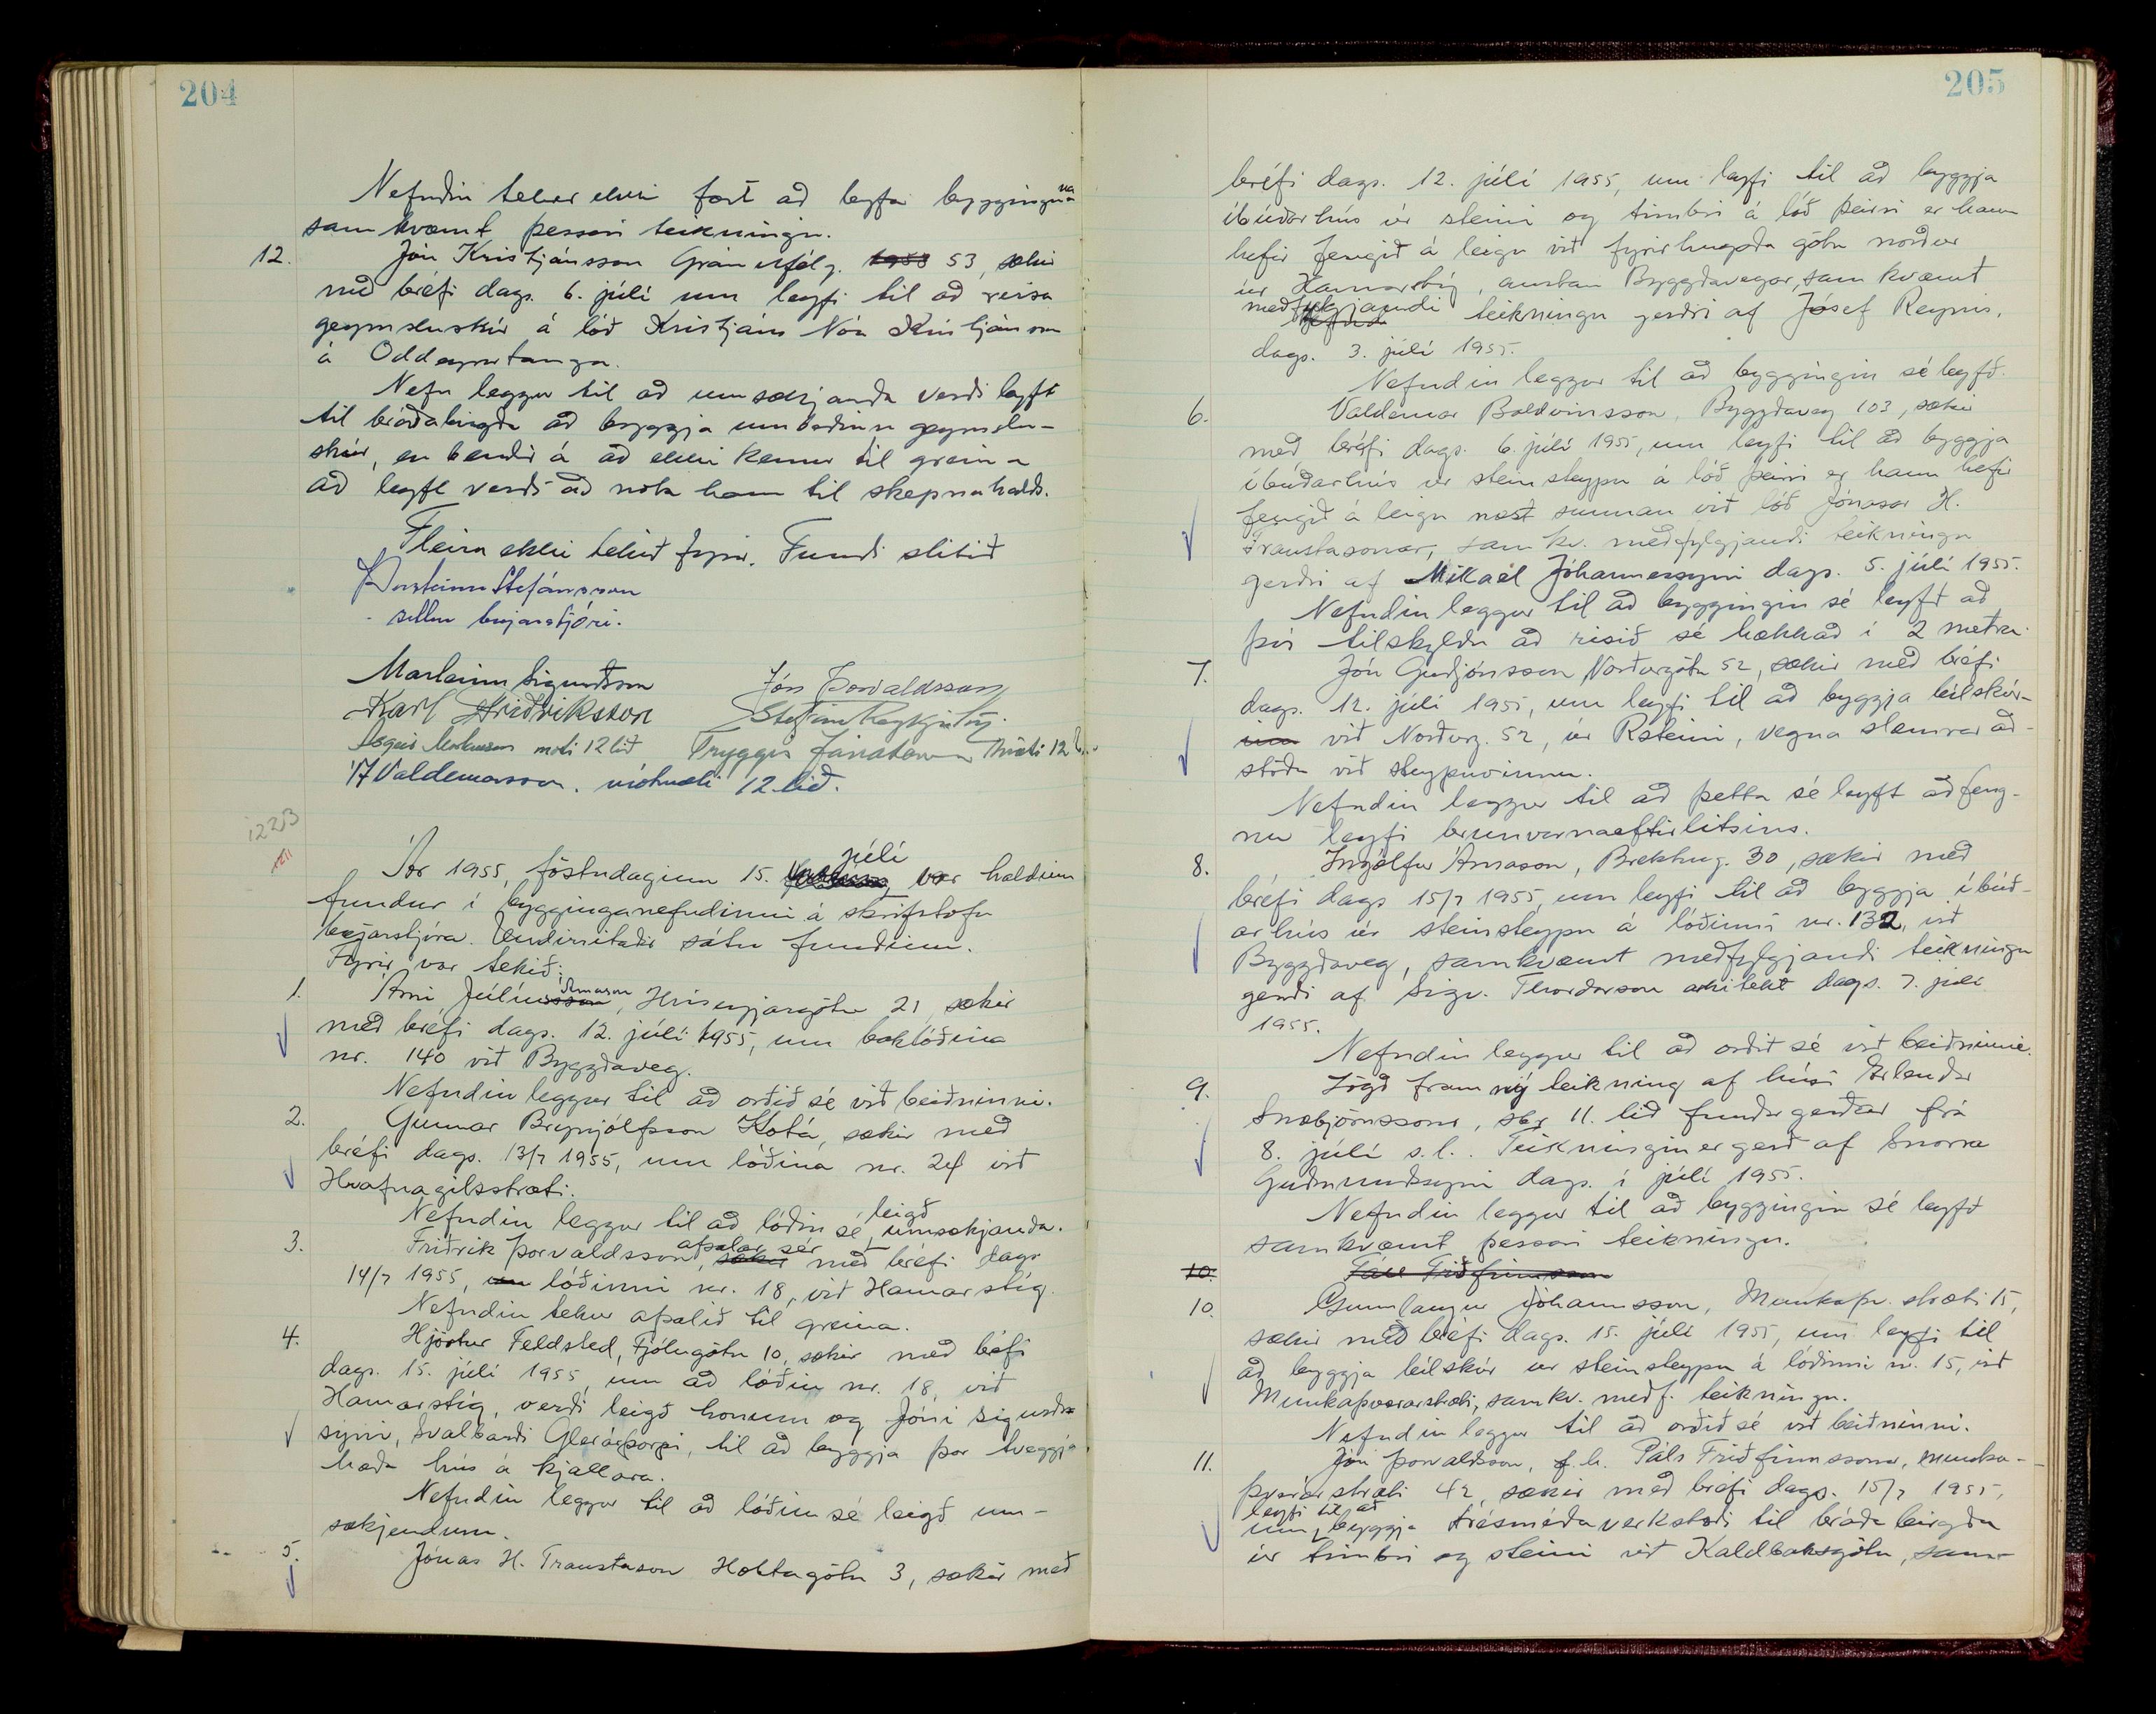 204
Nefndin telur ekki fært að leyfa bygginguna
samkvæmt þessari teikningu.
12. Jón Kristjánsson Gránufélg. 1953 53, sækir
með bréfi dags. 6. júlí um leyfi til að reisa
geymsluskúr á lóð Kristjáns Nóa Kristjánssonar
á Oddeyrartanga.
Nefn leggur til að umsækjanda verði leyft
til bráðabirgða að byggja umbeðinn geymslu-
skúr, en bendir á að ekki kemur til greina
að leyft verði að nota hann til skepnuhalds.
Fleira ekki tekið fyrir. Fundi slitið
Þorsteinn Stefánsson
- settur bæjarstjóri.
Marteinn Sigurðsson Jón Þorvaldsson
Karl Friðriksson Stefán Reykjalín.
móti 12 lið Tryggvi Jónatansson móti 12
Valdemarsson. mótmæli 12. lið.
12213
Ár 1955, föstudaginn 15. júlí var haldinn
fundur í bygginganefndinni á skrifstofu
bæjarstjóra. Undirritaðir sátu fundinn.
Fyrir var tekið:
1. Árni Júlíusson Árnason, Hríseyjargötu 21 sækir
með bréfi dags. 12. júlí 1955, um baklóðina
nr. 140 við Byggðaveg.
Nefndin leggur til að orðið sé við beiðninni.
2. Gunnar Brynjólfsson Kotá, sækir með
bréfi dags. 13/7 1955, um lóðina nr. 24 við
Hrafnagilsstræti.
Nefndin leggur til að lóðin sé leigð umsækjanda.
3. Friðrik Þorvaldsson, sækir afsalar sér með bréfi dags
14/7 1955, um lóðinni nr. 18, við Hamarstíg.
Nefndin tekur afsalið til greina.
4. Hjörtur Feldsted, Fjólugötu 10, sækir með bréfi
dags. 15. júlí 1955, um að lóðin nr. 18, við
Hamarstíg, verði leigð honum og Jóni Sigurðs-
syni, Svalbarði Glerárþorpi, til að byggja þar tveggja
hæða hús á kjallara.
Nefndin leggur til að lóðin sé leigð um-
sækjendum.
5. Jónas H. Traustason Holtagötu 3, sækir með
205
bréfi dags. 12. júlí 1955, um leyfi til að byggja
íbúðarhús úr steini og timbri á lóð þeirri er hann
hefir fengið á leigu við fyrirhugaða götu norður
úr Hamarstíg, austan Byggðavegar, samkvæmt
meðfylgjandi teikningu gerðri af Jósef Reynis,
dags. 3. júlí 1955.
Nefndin leggur til að byggingin sé leyfð.
6. Valdemar Baldvinsson, Byggðaveg 103, sækir
með bréfi dags. 6. júlí 1955, um leyfi til að byggja
íbúðarhús úr steinsteypu á lóð þeirri er hann hefir
fengið á leigu næst sunnan við lóð Jónasar H.
Traustasonar, samkv. meðfylgjandi teikningu
gerðri af Mikael Jóhannessyni dags. 5. júlí 1955.
Nefndin leggur til að byggingin sé leyfð að
því tilskyldu að risið sé hækkað í 2 metra.
7. Jón Guðjónsson Norðurgötu 52, sækir með bréfi
dags. 12. júlí 1955, um leyfi til að byggja bílskúr-
inn við Norðurg. 52, úr Rsteini, vegna slæmrar að-
stöðu við steypuvinnu.
Nefndin leggur til að þetta sé leyft að feng-
nu leyfi brunvarnaeftirlitsins.
8. Ingólfur Árnason, Brekkug. 30, sækir með
bréfi dags 15/7 1955, um leyfi til að byggja íbúð-
arhús úr steinsteypu á lóðinni nr. 132, við
Byggðaveg, samkvæmt meðfylgjandi teikningu
gerði af Sigv. Thordarson arkitekt dags. 7. júlí
1955.
Nefndin leggur til að orðið sé við beiðninni.
9. Lögð fram ný teikning af húsi Erlendar
Snæbjörnssonar, sbr 11. lið fundargerðar frá
8. júlí s.l.. Teikningin er gerð af Snorra
Guðmundssyni dags. í júlí 1955.
Nefndin leggur til að byggingin sé leyfð
samkvæmt þessari teikningu.
10. Páll Friðfinnsson
10. Gunnlaugur Jóhannsson, Munkaþv. stræti 15,
sækir með bréfi dags. 15. júlí 1955, um leyfi til
að byggja bílskúr úr steinsteypu á lóðinni nr. 15, við
Munkaþverárstræti, samkv. meðf. teikningu.
Nefndin leggur til að orðið sé við beiðninni.
11. Jón Þorvaldsson, f.h. Páls Friðfinnssonar, Munka-
þverárstræti 42, sækir með bréfi dags. 15/7 1955,
um leyfi til að byggja trésmíðaverkstæði til bráðabirgða
úr timbri og steini við Kaldbaksgötu, sam-